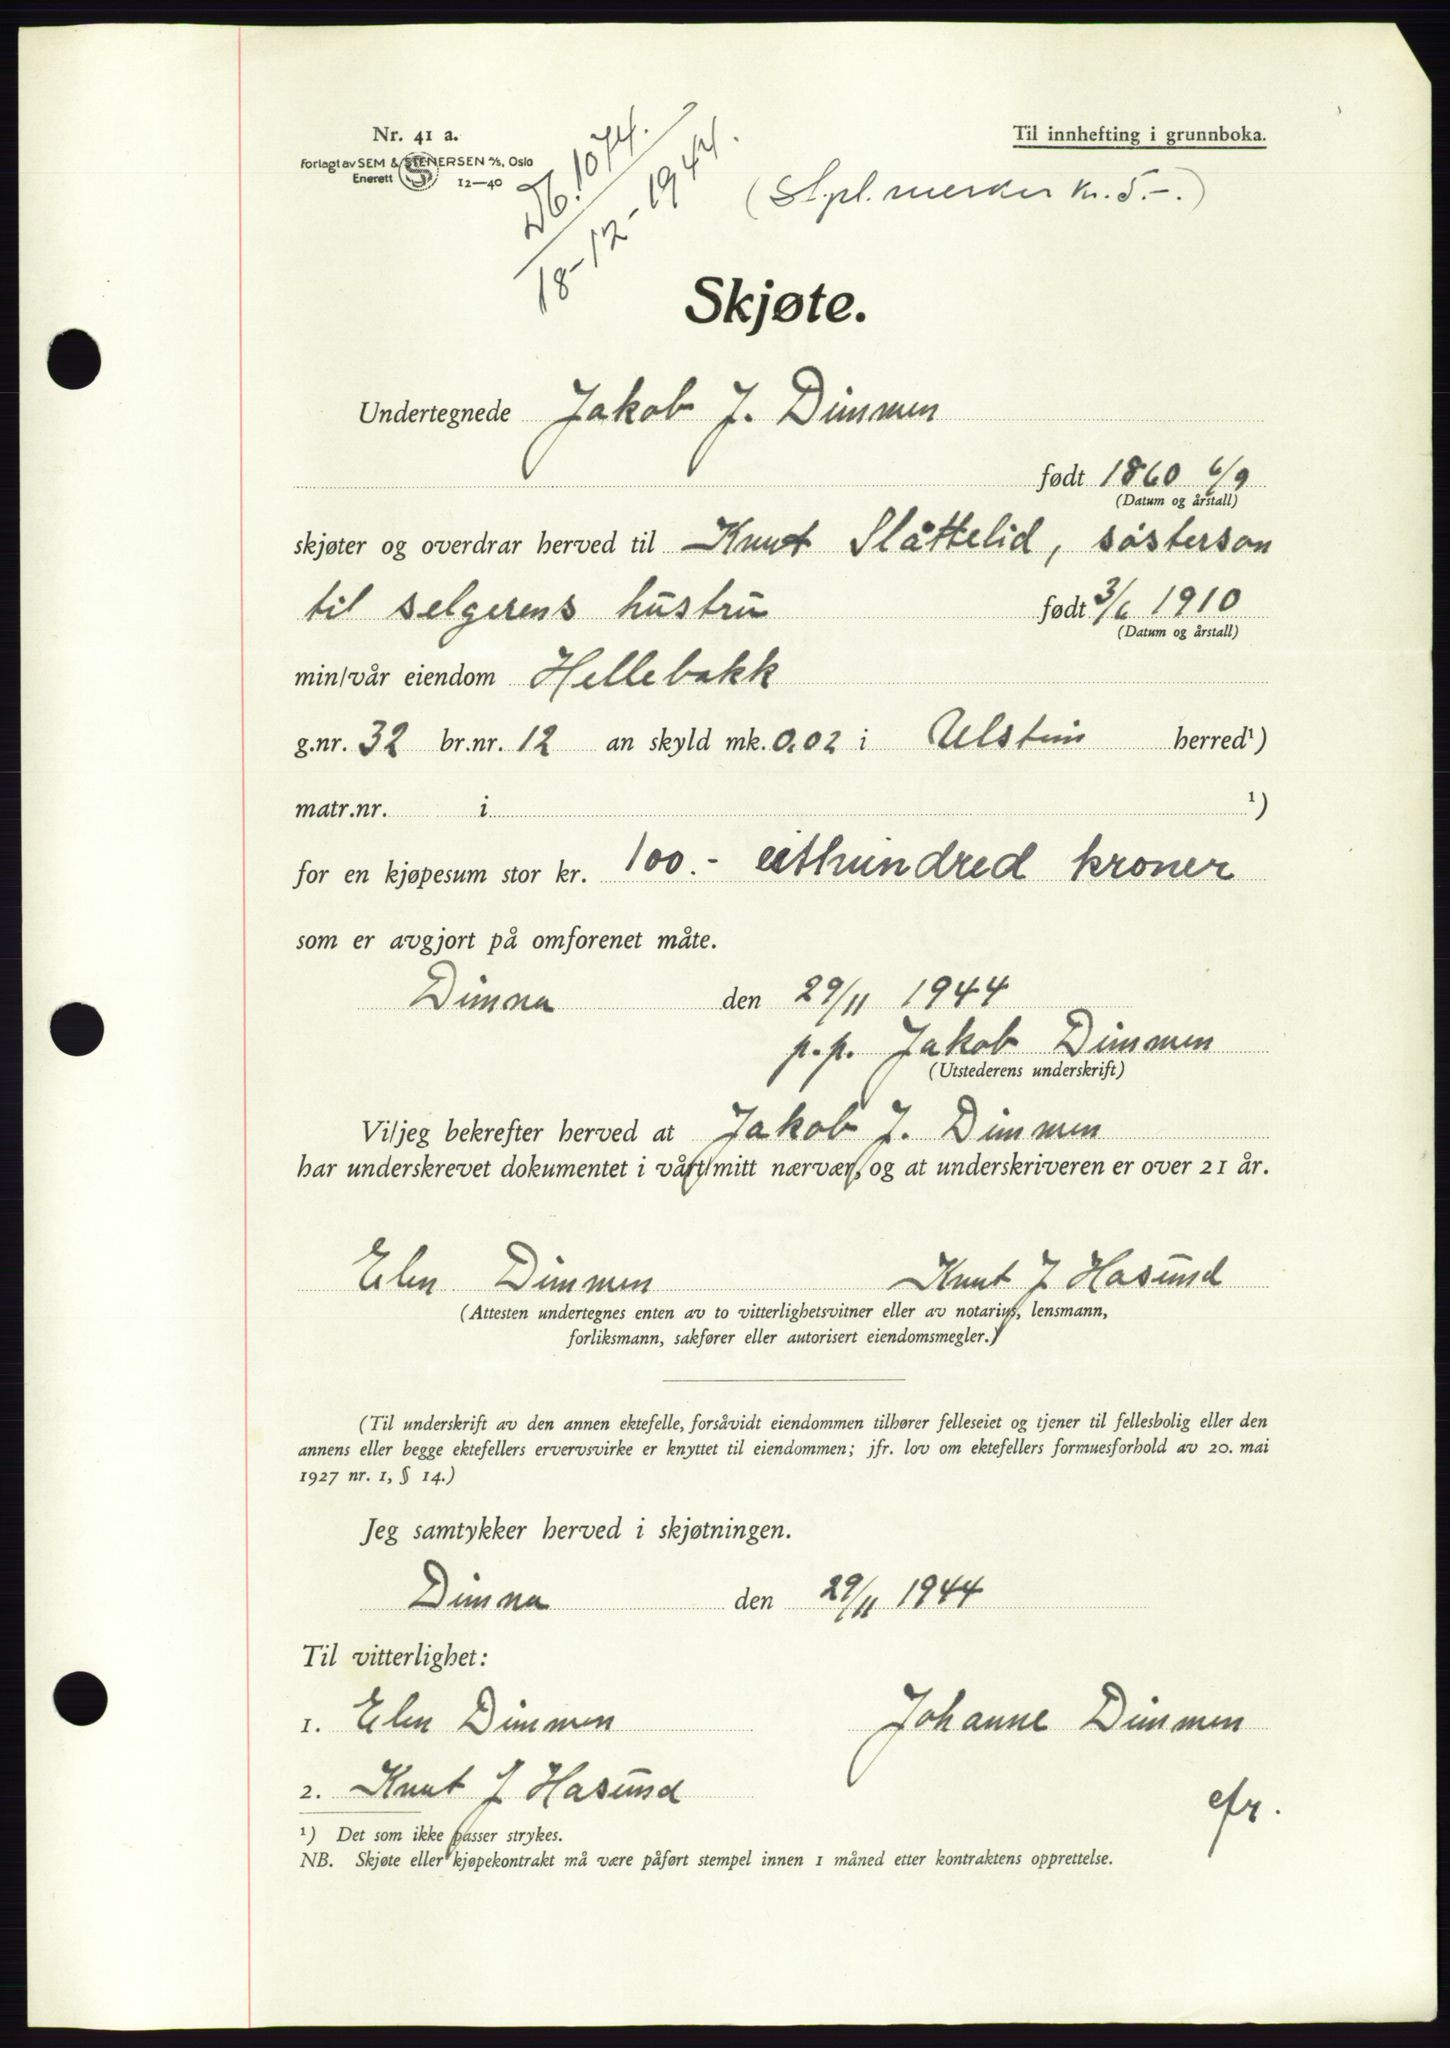 Nr. 41 a.
Til innhefting i grunnboka.
Forlagt av SEM & STENERSEN A/S, Oslo
Enerett 12—40
Db. 1074.
18-12-1944.
(St.pl. merker kr. 5.-.)
Skjøte.
Undertegnede Jakob J. Dimmen
født 1860 6/9
(Datum og årstall)
skjøter og overdrar herved til Knut Slåttelid, søsterson
til selgerens hustru født 3/6 1910
(Datum og årstall)
min/vår eiendom Hellebakk
g.nr. 32 br.nr. 12 an skyld mk. 0,02 i Ulstein herred¹)
matr.nr. i ¹)
for en kjøpesum stor kr. 100.- eithundred kroner
som er avgjort på omforenet måte.
Dimna den 29/11 1944
p.p. Jakob Dimmen
(Utstederens underskrift)
Vi/jeg bekrefter herved at Jakob J. Dimmen
har underskrevet dokumentet i vårt/mitt nærvær, og at underskriveren er over 21 år.
Elen Dimmen Knut J Hasund
(Attesten undertegnes enten av to vitterlighetsvitner eller av notarius, lensmann,
forliksmann, sakfører eller autorisert eiendomsmegler.)
(Til underskrift av den annen ektefelle, forsåvidt eiendommen tilhører felleseiet og tjener til fellesbolig eller den
annens eller begge ektefellers ervervsvirke er knyttet til eiendommen; jfr. lov om ektefellers formuesforhold av 20. mai
1927 nr. 1, § 14.)
Jeg samtykker herved i skjøtningen.
Dimna den 29/11 1944
Til vitterlighet:
1. Elen Dimmen Johanne Dimmen
2. Knut J Hasund
efr.
¹) Det som ikke passer strykes.
NB. Skjøte eller kjøpekontrakt må være påført stempel innen 1 måned etter kontraktens opprettelse.